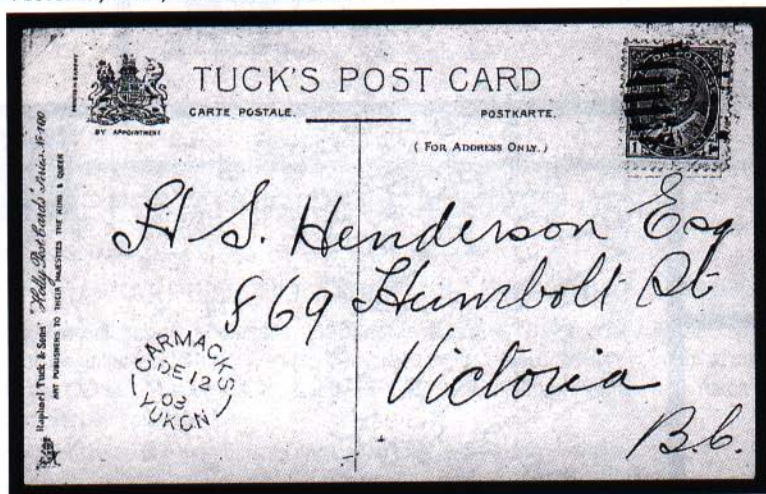 TUCK'S POST CARD
CARTE POSTALE.
POSTKARTE.
(FOR ADDRESS ONLY.)
BY APPOINTMENT
Raphael Tuck & Sons' "Holly Post Cards" Series No 100
ART PUBLISHERS TO THEIR MAJESTIES THE KING & QUEEN
1 1
H S. Henderson Esq
869 Humbolt St
Victoria
B.C.
CARMACKS
DE 12
03
YUKON